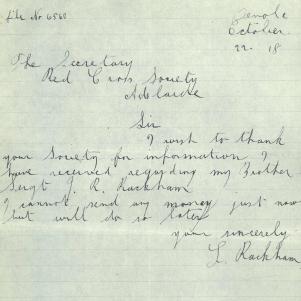 File No 6568
October
22. 18
The Secretary
Red Cross Society
Adelaide
Sir
I wish to thank
your Society for information I
have received regarding my Brother
Sergt J. R. Rackham
I cannot send any money just now
but will do so later
your sincerely
L. Rackham